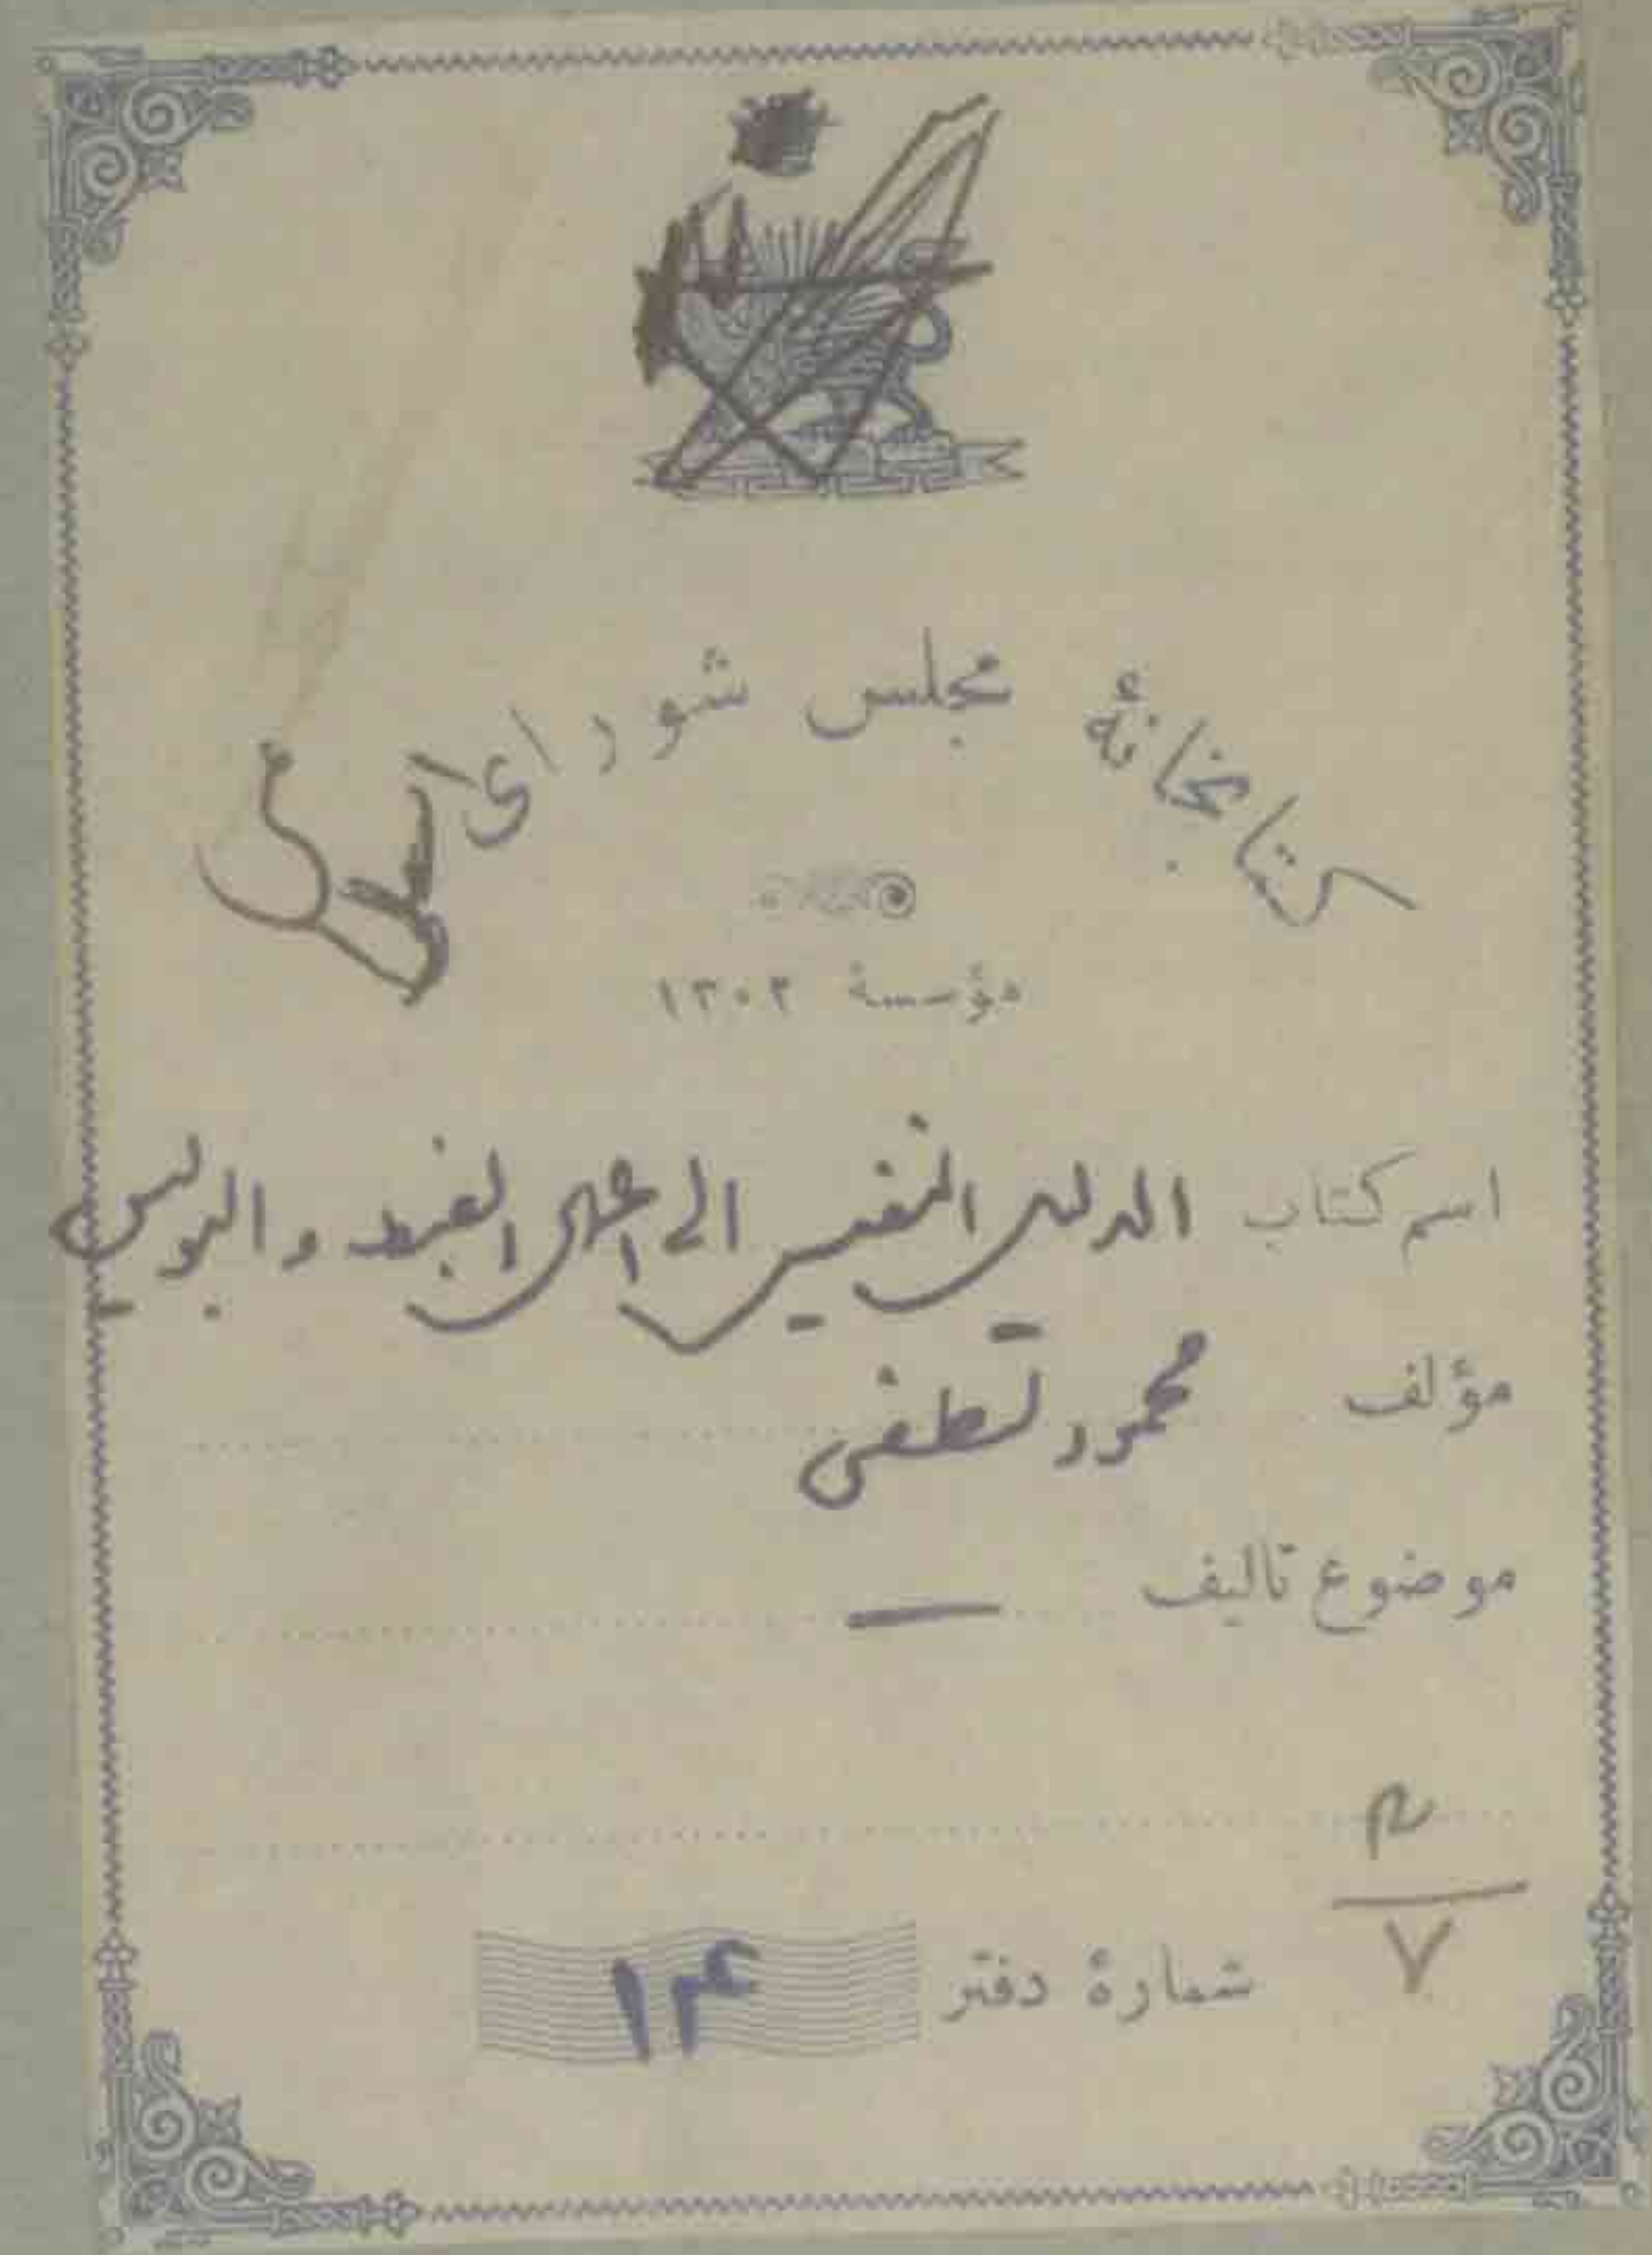 کتابخانهٔ مجلس شورای اسلامی
مؤسسهٔ ۱۳۰۲
اسم کتاب الدلیل النفیس الی اعمال الضبط والبولیس
مؤلف محمود لطفی
موضوع تألیف —
۷
شمارهٔ دفتر ۱۴